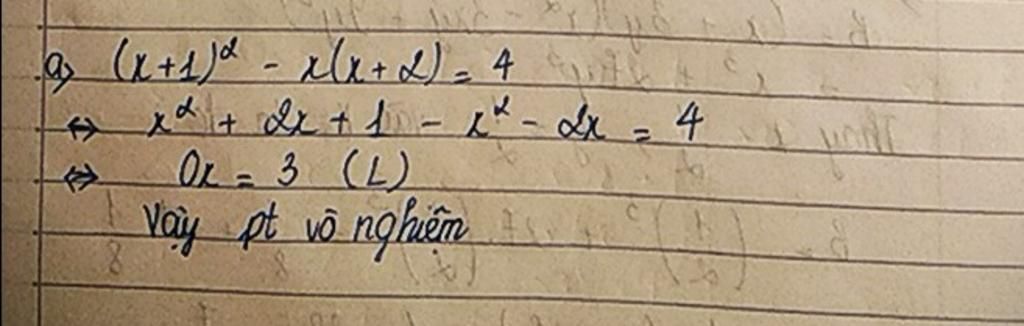 a) (x+1)² - x(x+2) = 4
⇔ x² + 2x + 1 - x² - 2x = 4
⇔ 0x = 3 (L)
Vậy pt vô nghiệm